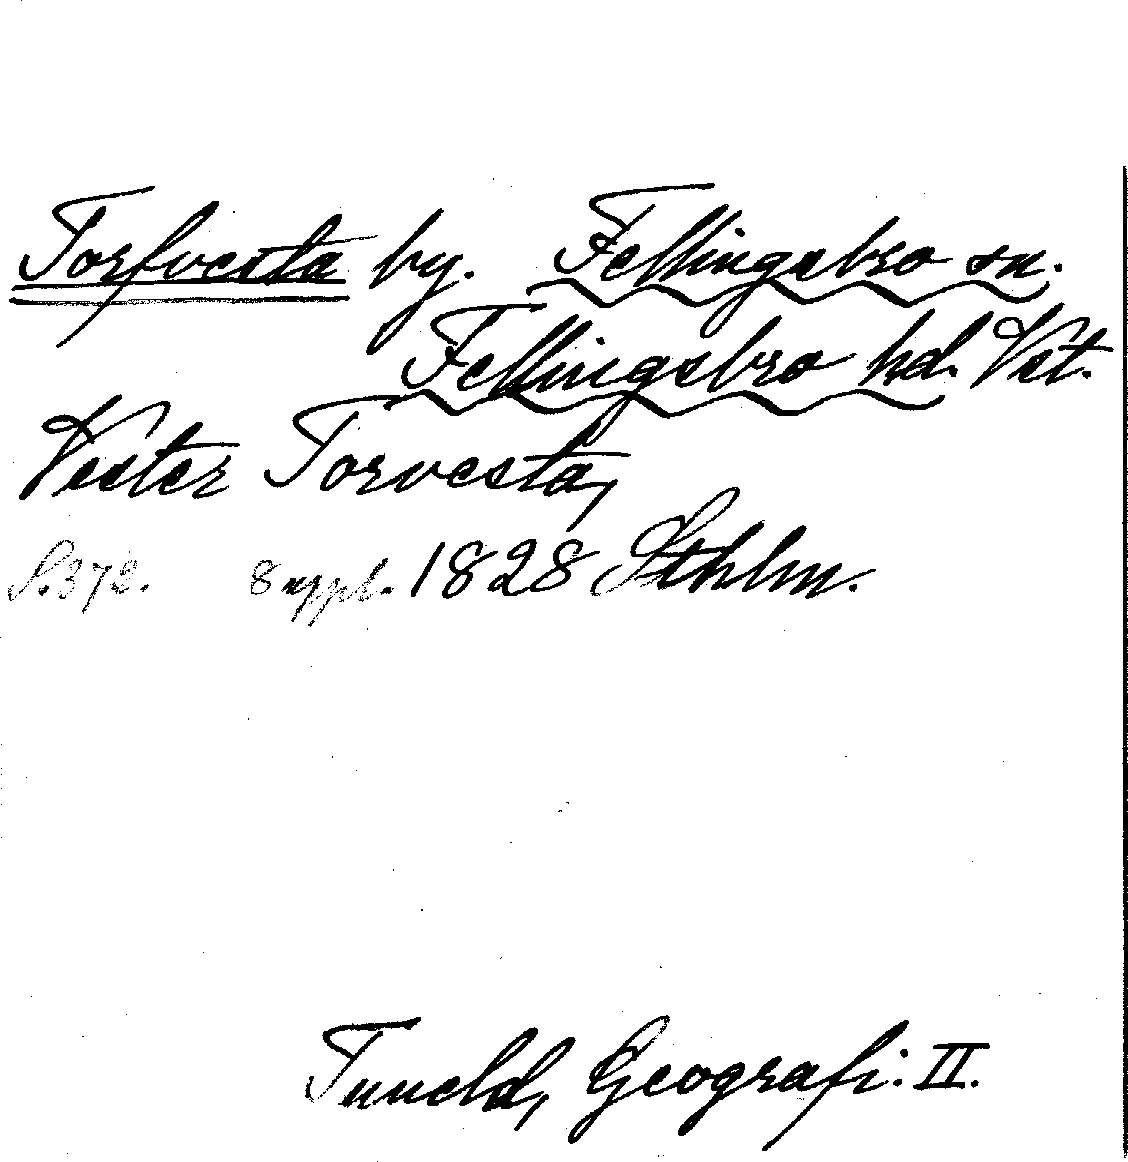 Torfvesta by. Fellingsbro sn.
Fellingsbro hd. Vst.
Vester Torvesta,
S. 372. Suppl. 1828 Sthlm.
Tuneld, Geografi. II.